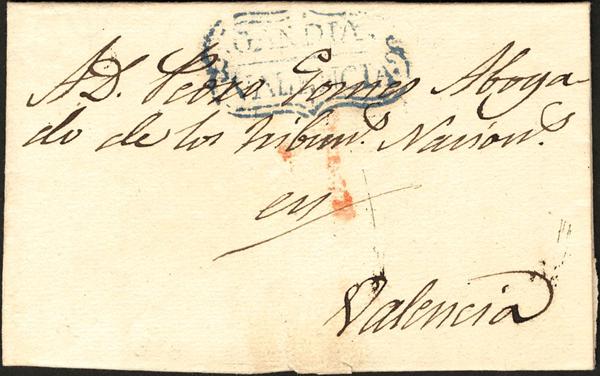 GANDIA.
VALENCIA.
A D. Pedro Gomes Aboga
do de los tribun.s Nacion.s
en
Valencia